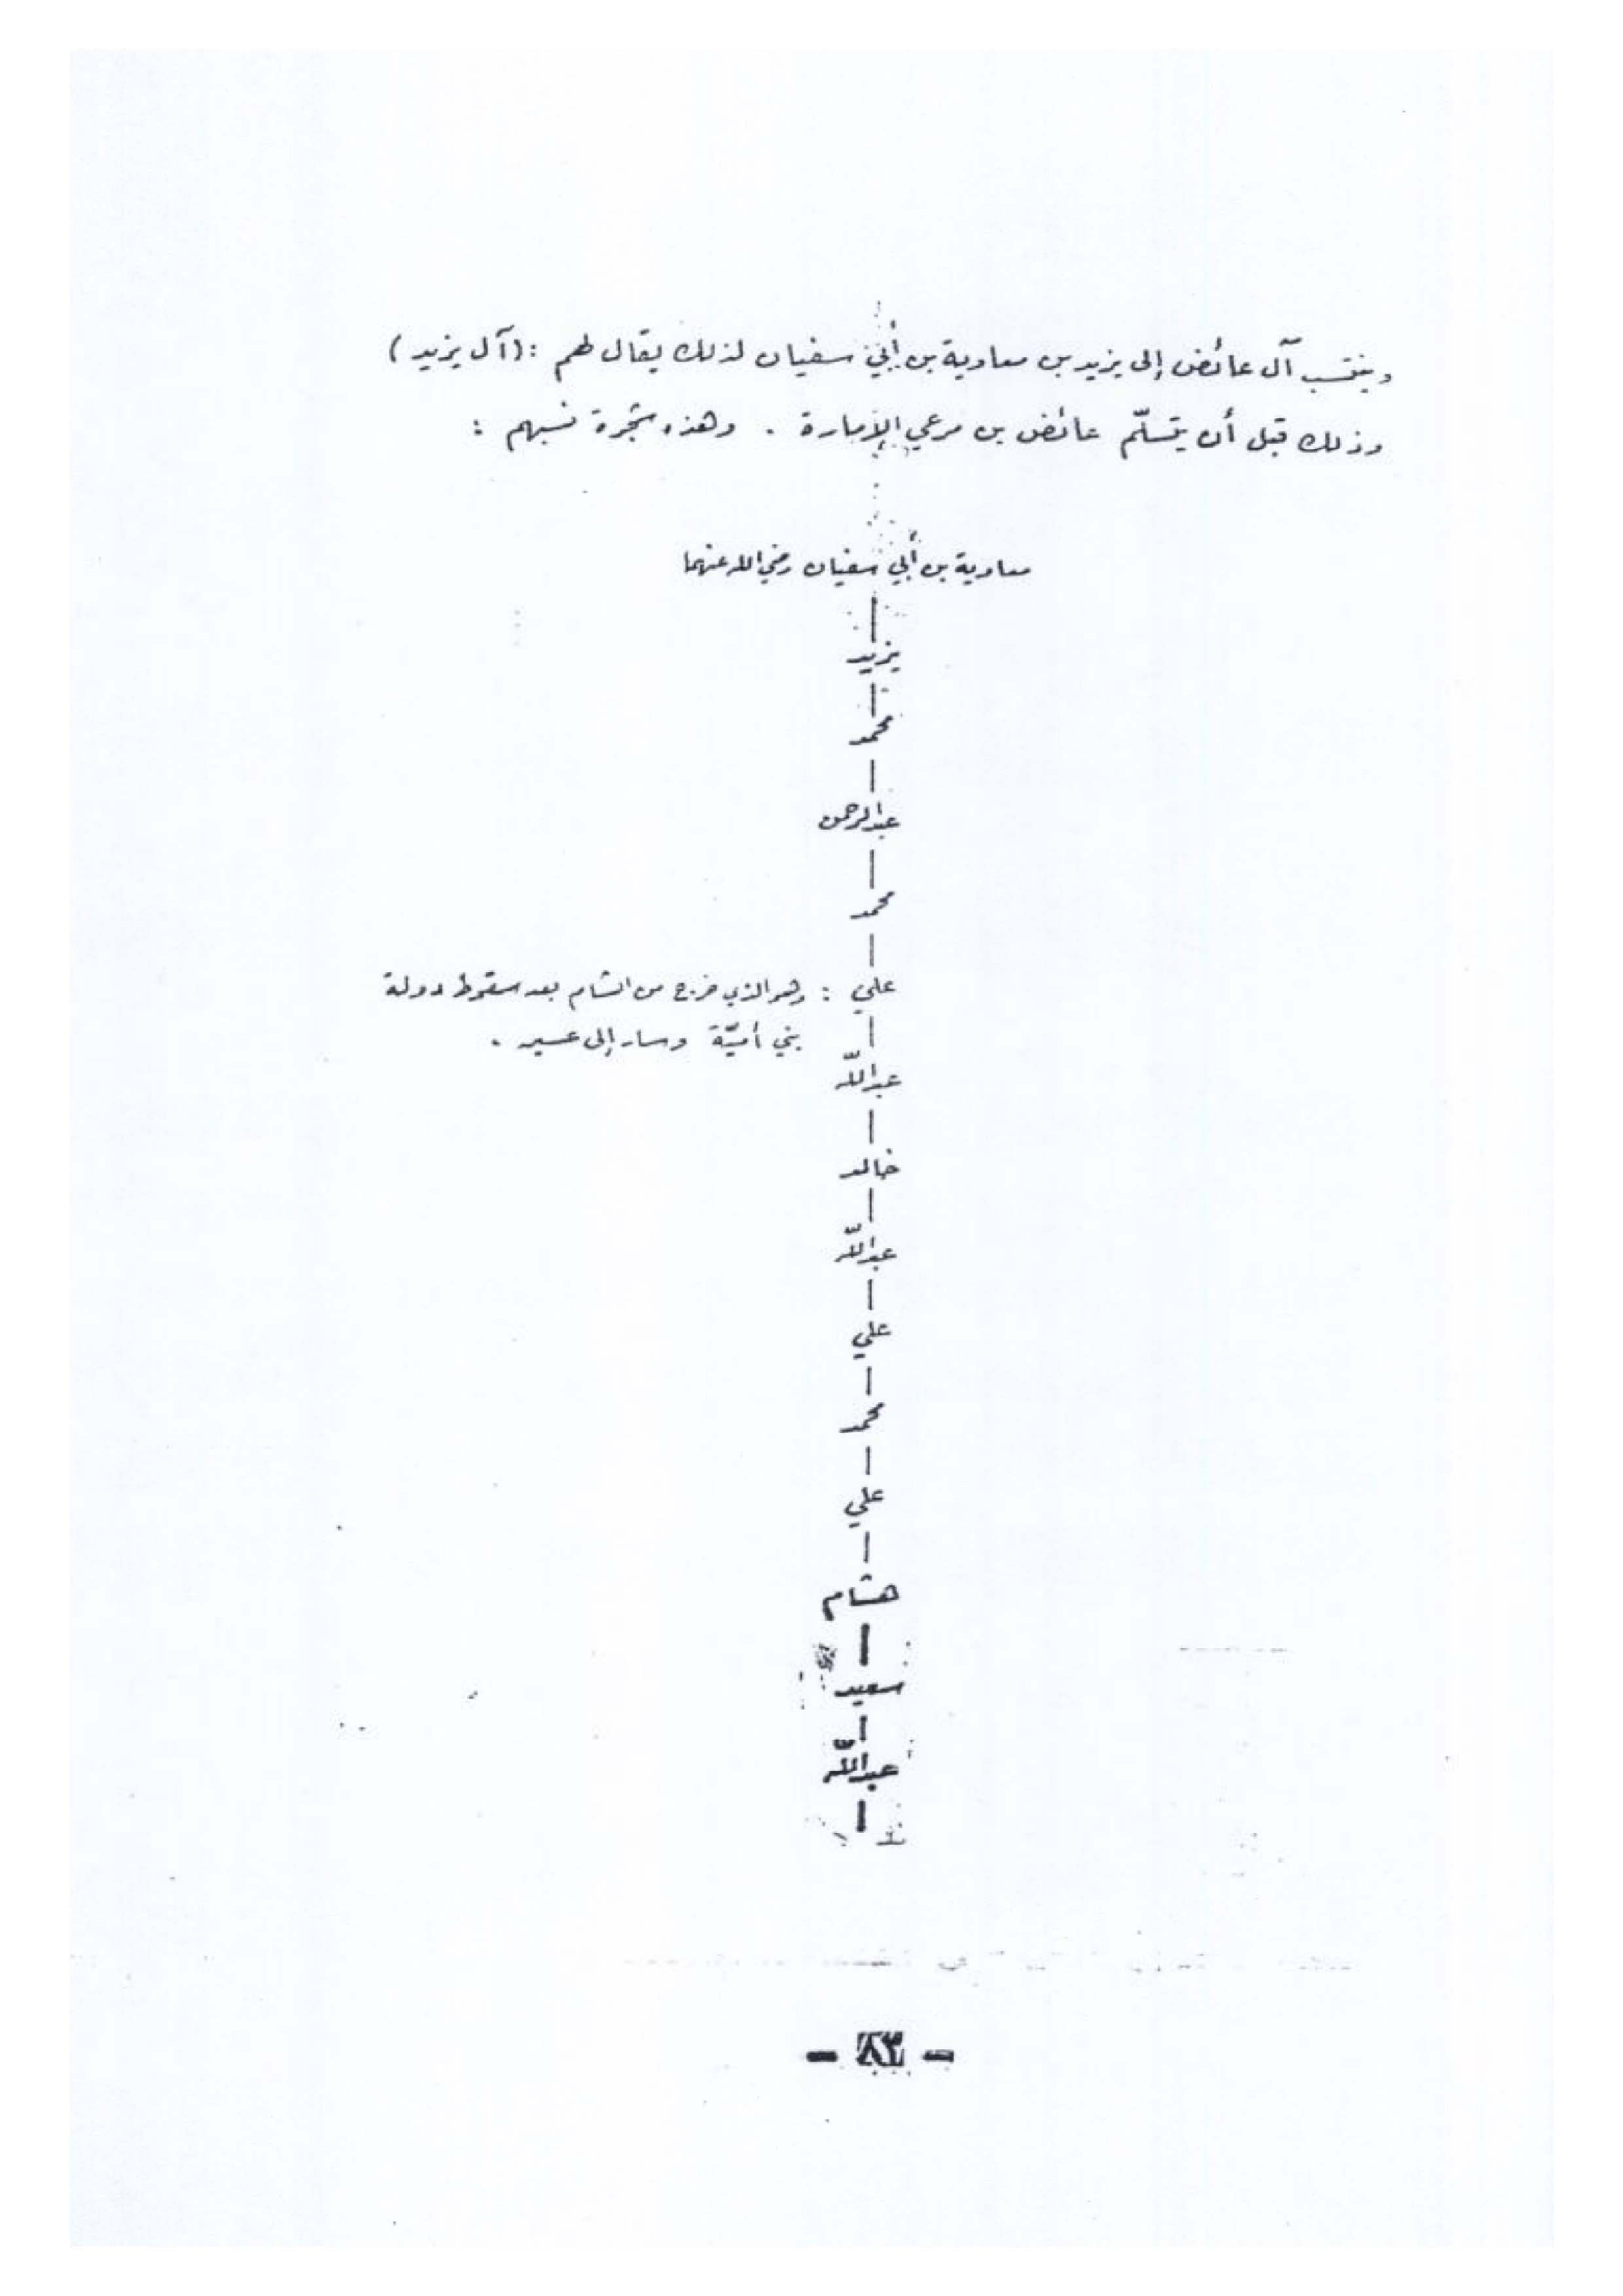 وينتسب آل عائض إلى يزيد بن معاوية بن أبي سفيان لذلك يقال لهم : (آل يزيد)
وذلك قبل أن يتسلّم عائض بن مرعي الإمارة . وهذه شجرة نسبهم :
معاوية بن أبي سفيان رضي الله عنهما
يزيد
محمد
عبدالرحمن
محمد
علي : وهو الذي خرج من الشام بعد سقوط دولة
بني أميّة وسار إلى عسير .
عبدالله
خالد
عبدالله
علي
محمد
علي
هشام
سعيد
عبدالله
- ٨٣ -